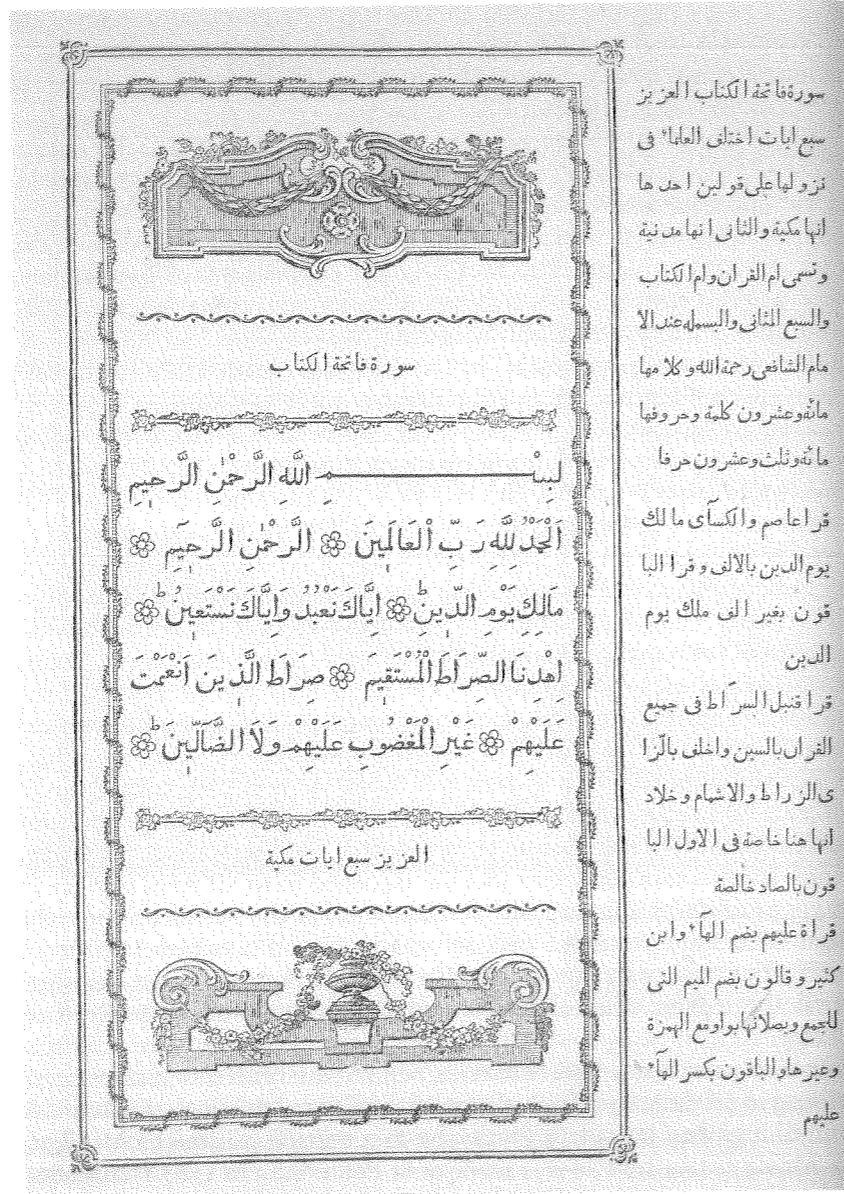 سورة فاتحة الكتاب
بِسْمِ اللّٰهِ الرَّحْمٰنِ الرَّحِيمِ
اَلْحَمْدُ لِلّٰهِ رَبِّ الْعَالَمِينَ ۞ الرَّحْمٰنِ الرَّحِيمِ ۞
مَالِكِ يَوْمِ الدِّينِ ۞ اِيَّاكَ نَعْبُدُ وَاِيَّاكَ نَسْتَعِينُ ۞
اِهْدِنَا الصِّرَاطَ الْمُسْتَقِيمَ ۞ صِرَاطَ الَّذِينَ اَنْعَمْتَ
عَلَيْهِمْ ۞ غَيْرِ الْمَغْضُوبِ عَلَيْهِمْ وَلَا الضَّالِّينَ ۞
العزيز سبع ايات مكية
سورة فاتحة الكتاب العزيز
سبع ايات اختلف العلماء فى
نزولها على قولين احدها
انها مكية والثانى انها مدنية
وتسمى ام القران وام الكتاب
والسبع المثانى والبسمله عند الا
مام الشافعى رحمة الله وكلامها
مائة وعشرون كلمة وحروفها
مائة وثلث وعشرون حرفا
قرا عاصم والكسآى مالك
يوم الدين بالالف وقرا البا
قون بغير الف ملك يوم
الدين
قرا قنبل السراط فى جميع
القران بالسين واخلف بالزا
ى الزراط والاشمام وخلاد
انها هنا خاصة فى الاول البا
قون بالصاد خالصة
قراة عليهم بضم الهآء وابن
كثير وقالون بضم الميم التى
للجمع وبصلانها بواو مع الهمزة
وغيرها والباقون بكسر الهآء
عليهم